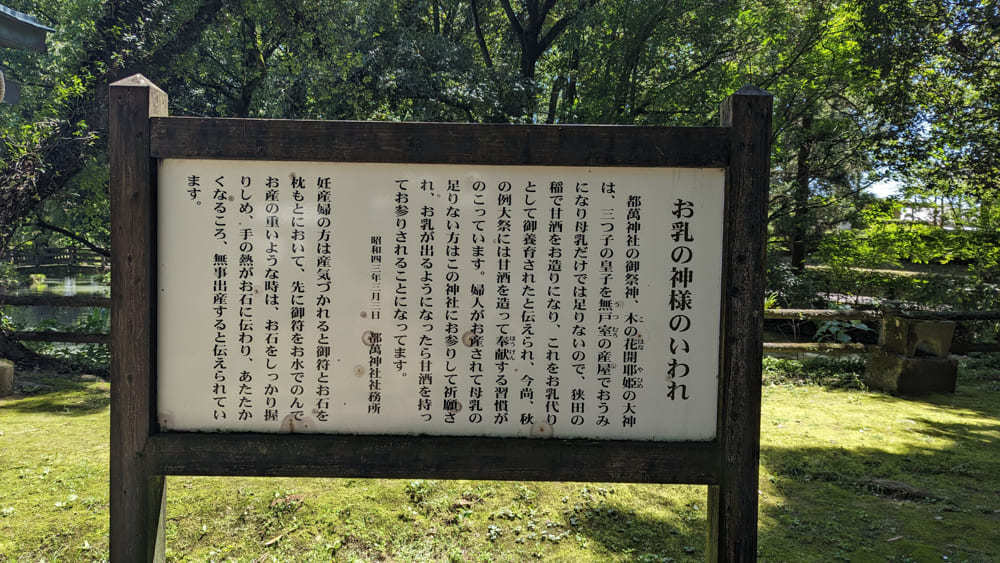 お乳の神様のいわれ
都萬神社の御祭神、木の花開耶姫の大神
は、三つ子の皇子を無戸室の産屋でおうみ
になり母乳だけでは足りないので、狭田の
稲で甘酒をお造りになり、これをお乳代り
として御養育されたと伝えられ、今尚、秋
の例大祭には甘酒を造って奉献する習慣が
のこっています。婦人がお産されて母乳の
足りない方はこの神社にお参りして祈願さ
れ、お乳が出るようになったら甘酒を持っ
てお参りされることになってます。
昭和四三年三月二日 都萬神社社務所
妊産婦の方は産気づかれると御符とお石を
枕もとにおいて、先に御符をお水でのんで
お産の重いような時は、お石をしっかり握
りしめ、手の熱がお石に伝わり、あたたか
くなるころ、無事出産すると伝えられてい
ます。